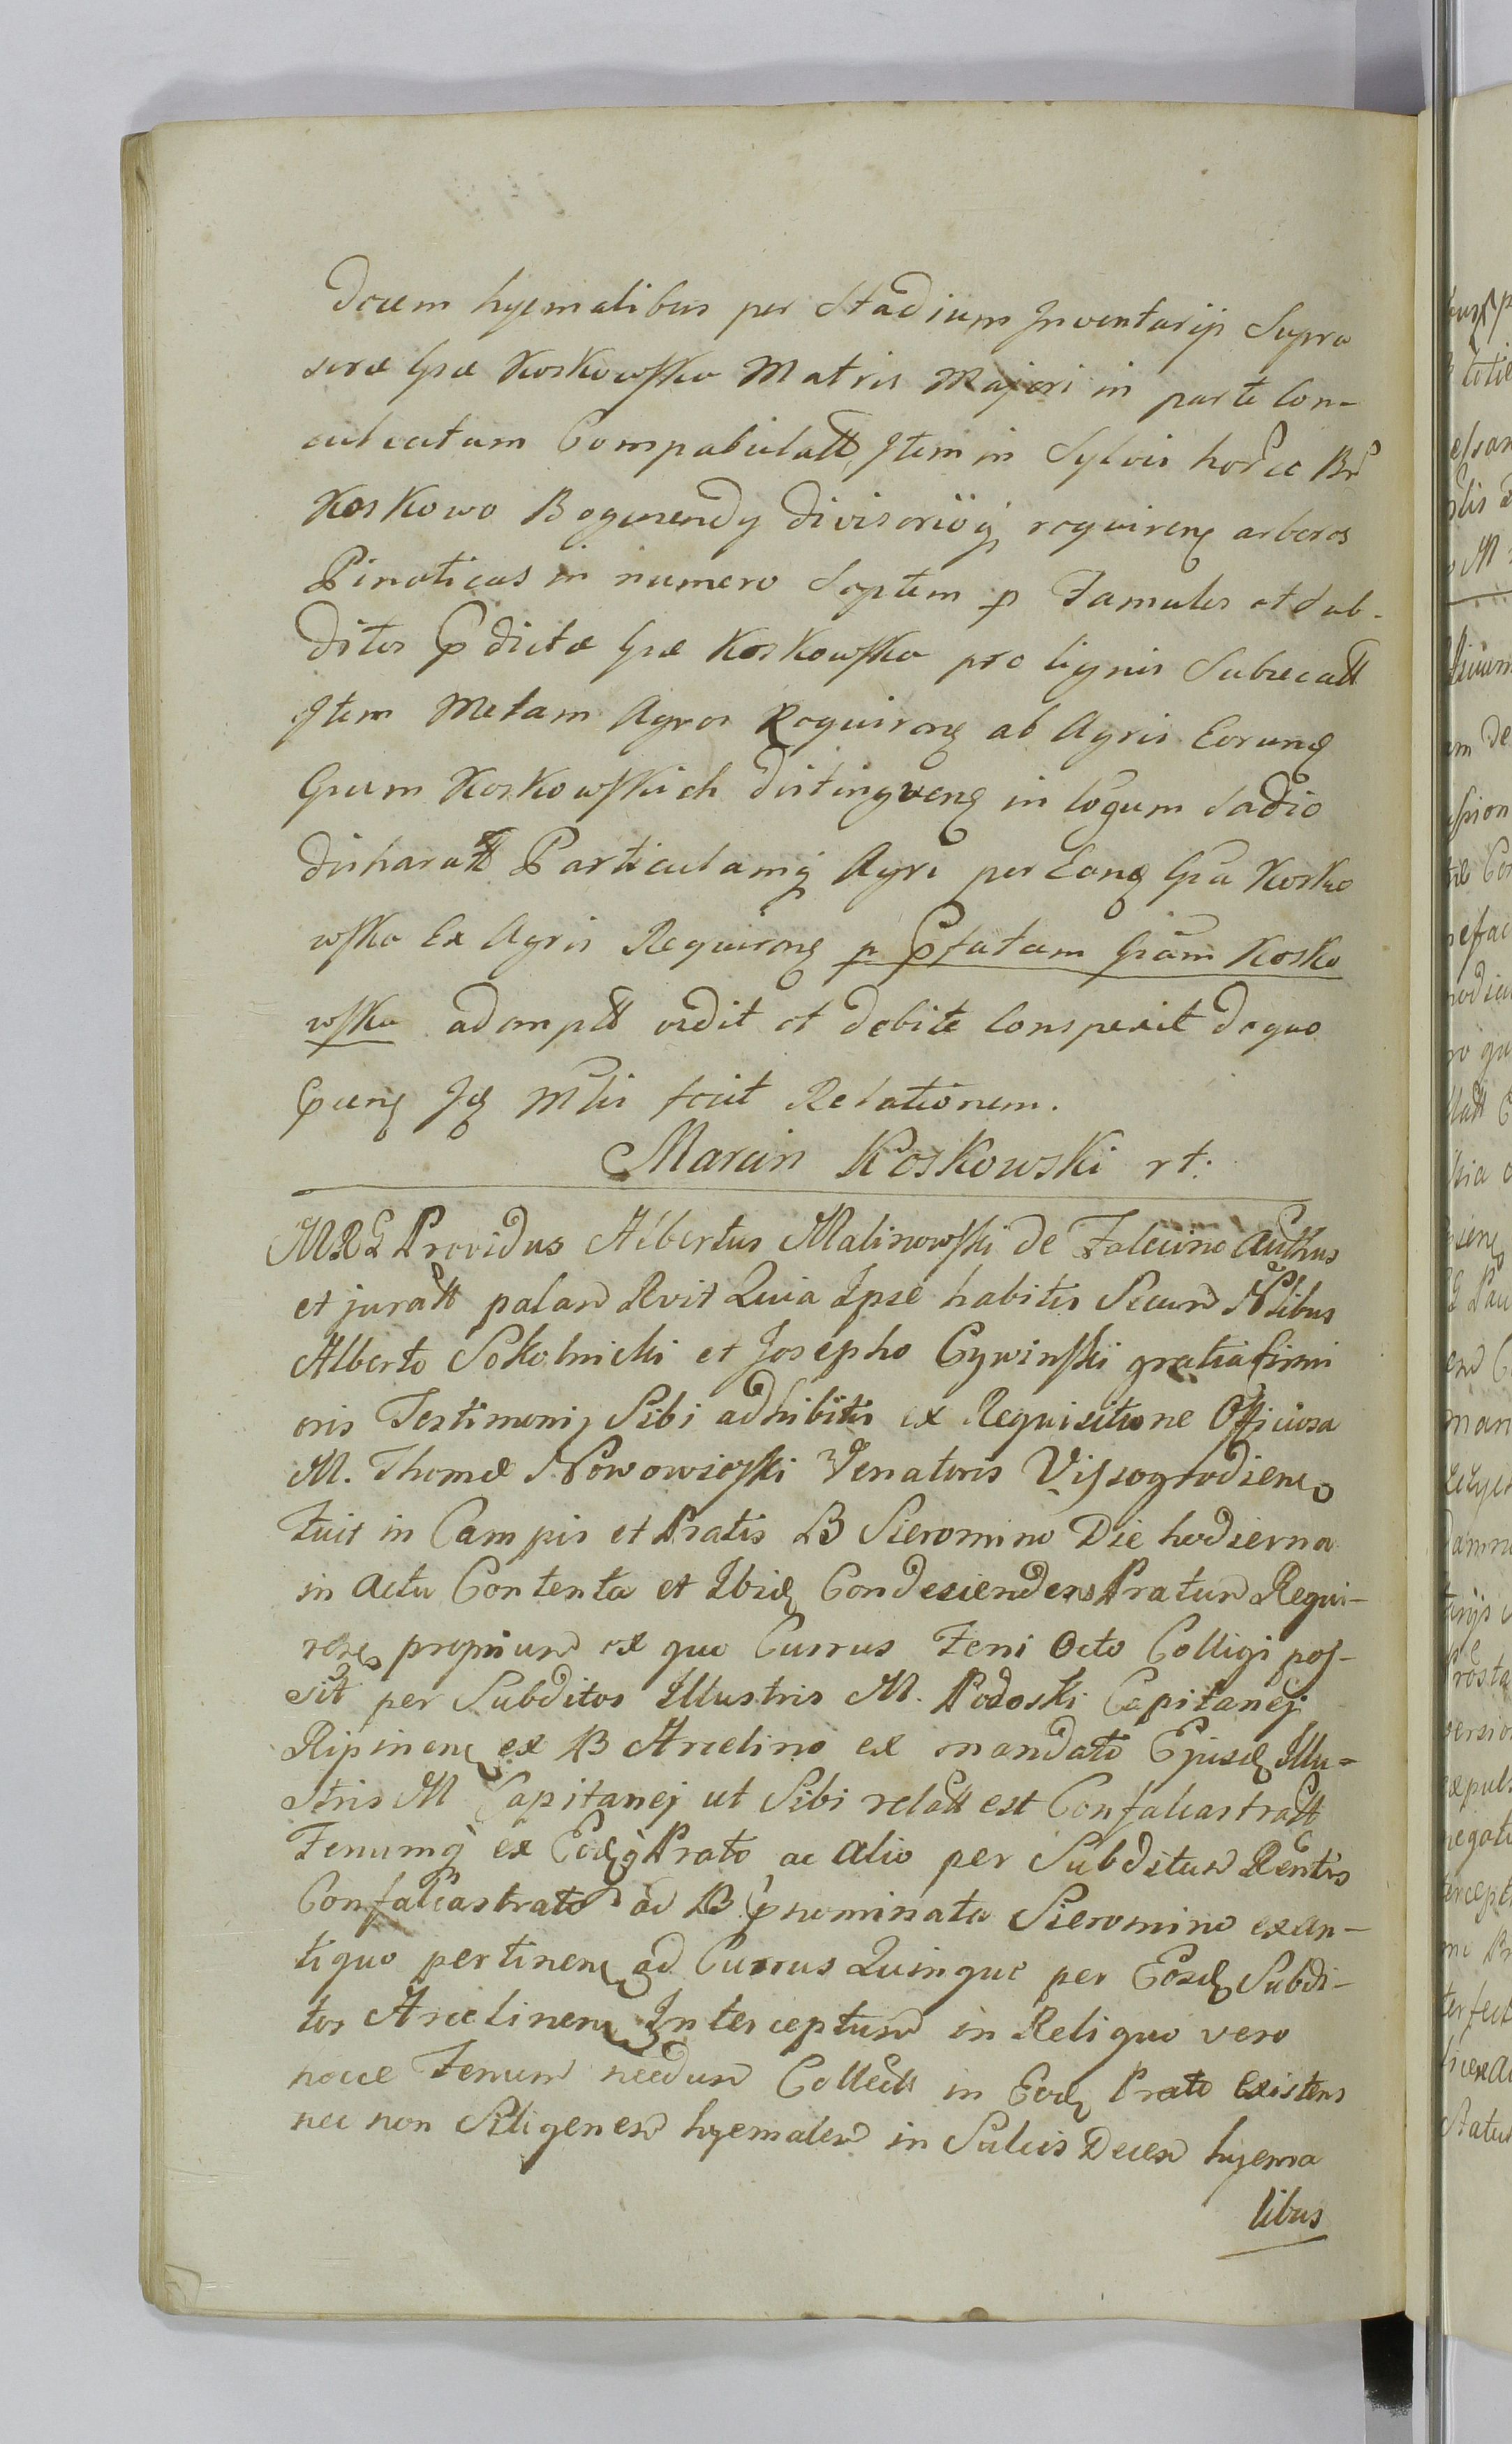 Decem hyemalibus per Stadium Inventarij Supra
scræ Gsæ Koskowska Matris Majori in parte Con-
culcatum Compabulatt, Item in Sylvis hor
Koskowo Boguendy divisorijq requiren arbores
Pinoticas in numero Septem p Famulos et Sub-
ditos pdictæ Gsæ Koskowska pro lignis Subsecatt
Item Metam Agros Requiren ab Agris Eorund
Gsum Koskowskich distinguen in lõgum Sadio
disharatt Particulamq Agri per Eand Gsa Kosko
wska Ex Agris Requiren p Pfatam Gsam Kosko
wska ademptt vidit et debite Conspexit dequo
psens Id Mlis fecit Relationem.
Marcin Koskowski rt:
MRG Providus Albertus Malinowski de Falcino Authus
et juratt palam Rvit Quia Ipse habitis Secum Nlibus
Alberto Sokolnicki et Josepho Cywinski gratia firmi
oris Testimonij Sibi adhibitis ex Requisitione Officiosa
M. Thomæ Nowowieyski Venatoris Vissogrodien
Fuit in Campis et Pratis B Sieromino Die hodierna
in Actu Contenta et Ibid Condescendens Pratum Requi-
ren proprium ex quo Currus Feni Octo Colligi pos-
sit per Subditos Illustris M. Podoski Capitanej
Ripinen ex B Arcelino ex mandato Ejusd Illu-
stris M Capitanej ut Sibi relatt est Confalcastratt
Fenumq ex Eodq Prato ac alio per Subditum Rentis
Confalcastrato ad B pnominata Sieromino exan-
tiquo pertinen ad Currus Quinque per Eosd Subdi-
tos Arcelinen Interceptum in Reliquo vero
hocce Fenum necdum Collectt in Eod Prato existens
nec non Siligenem hyemalem in Sulcis Decem hyema
libus